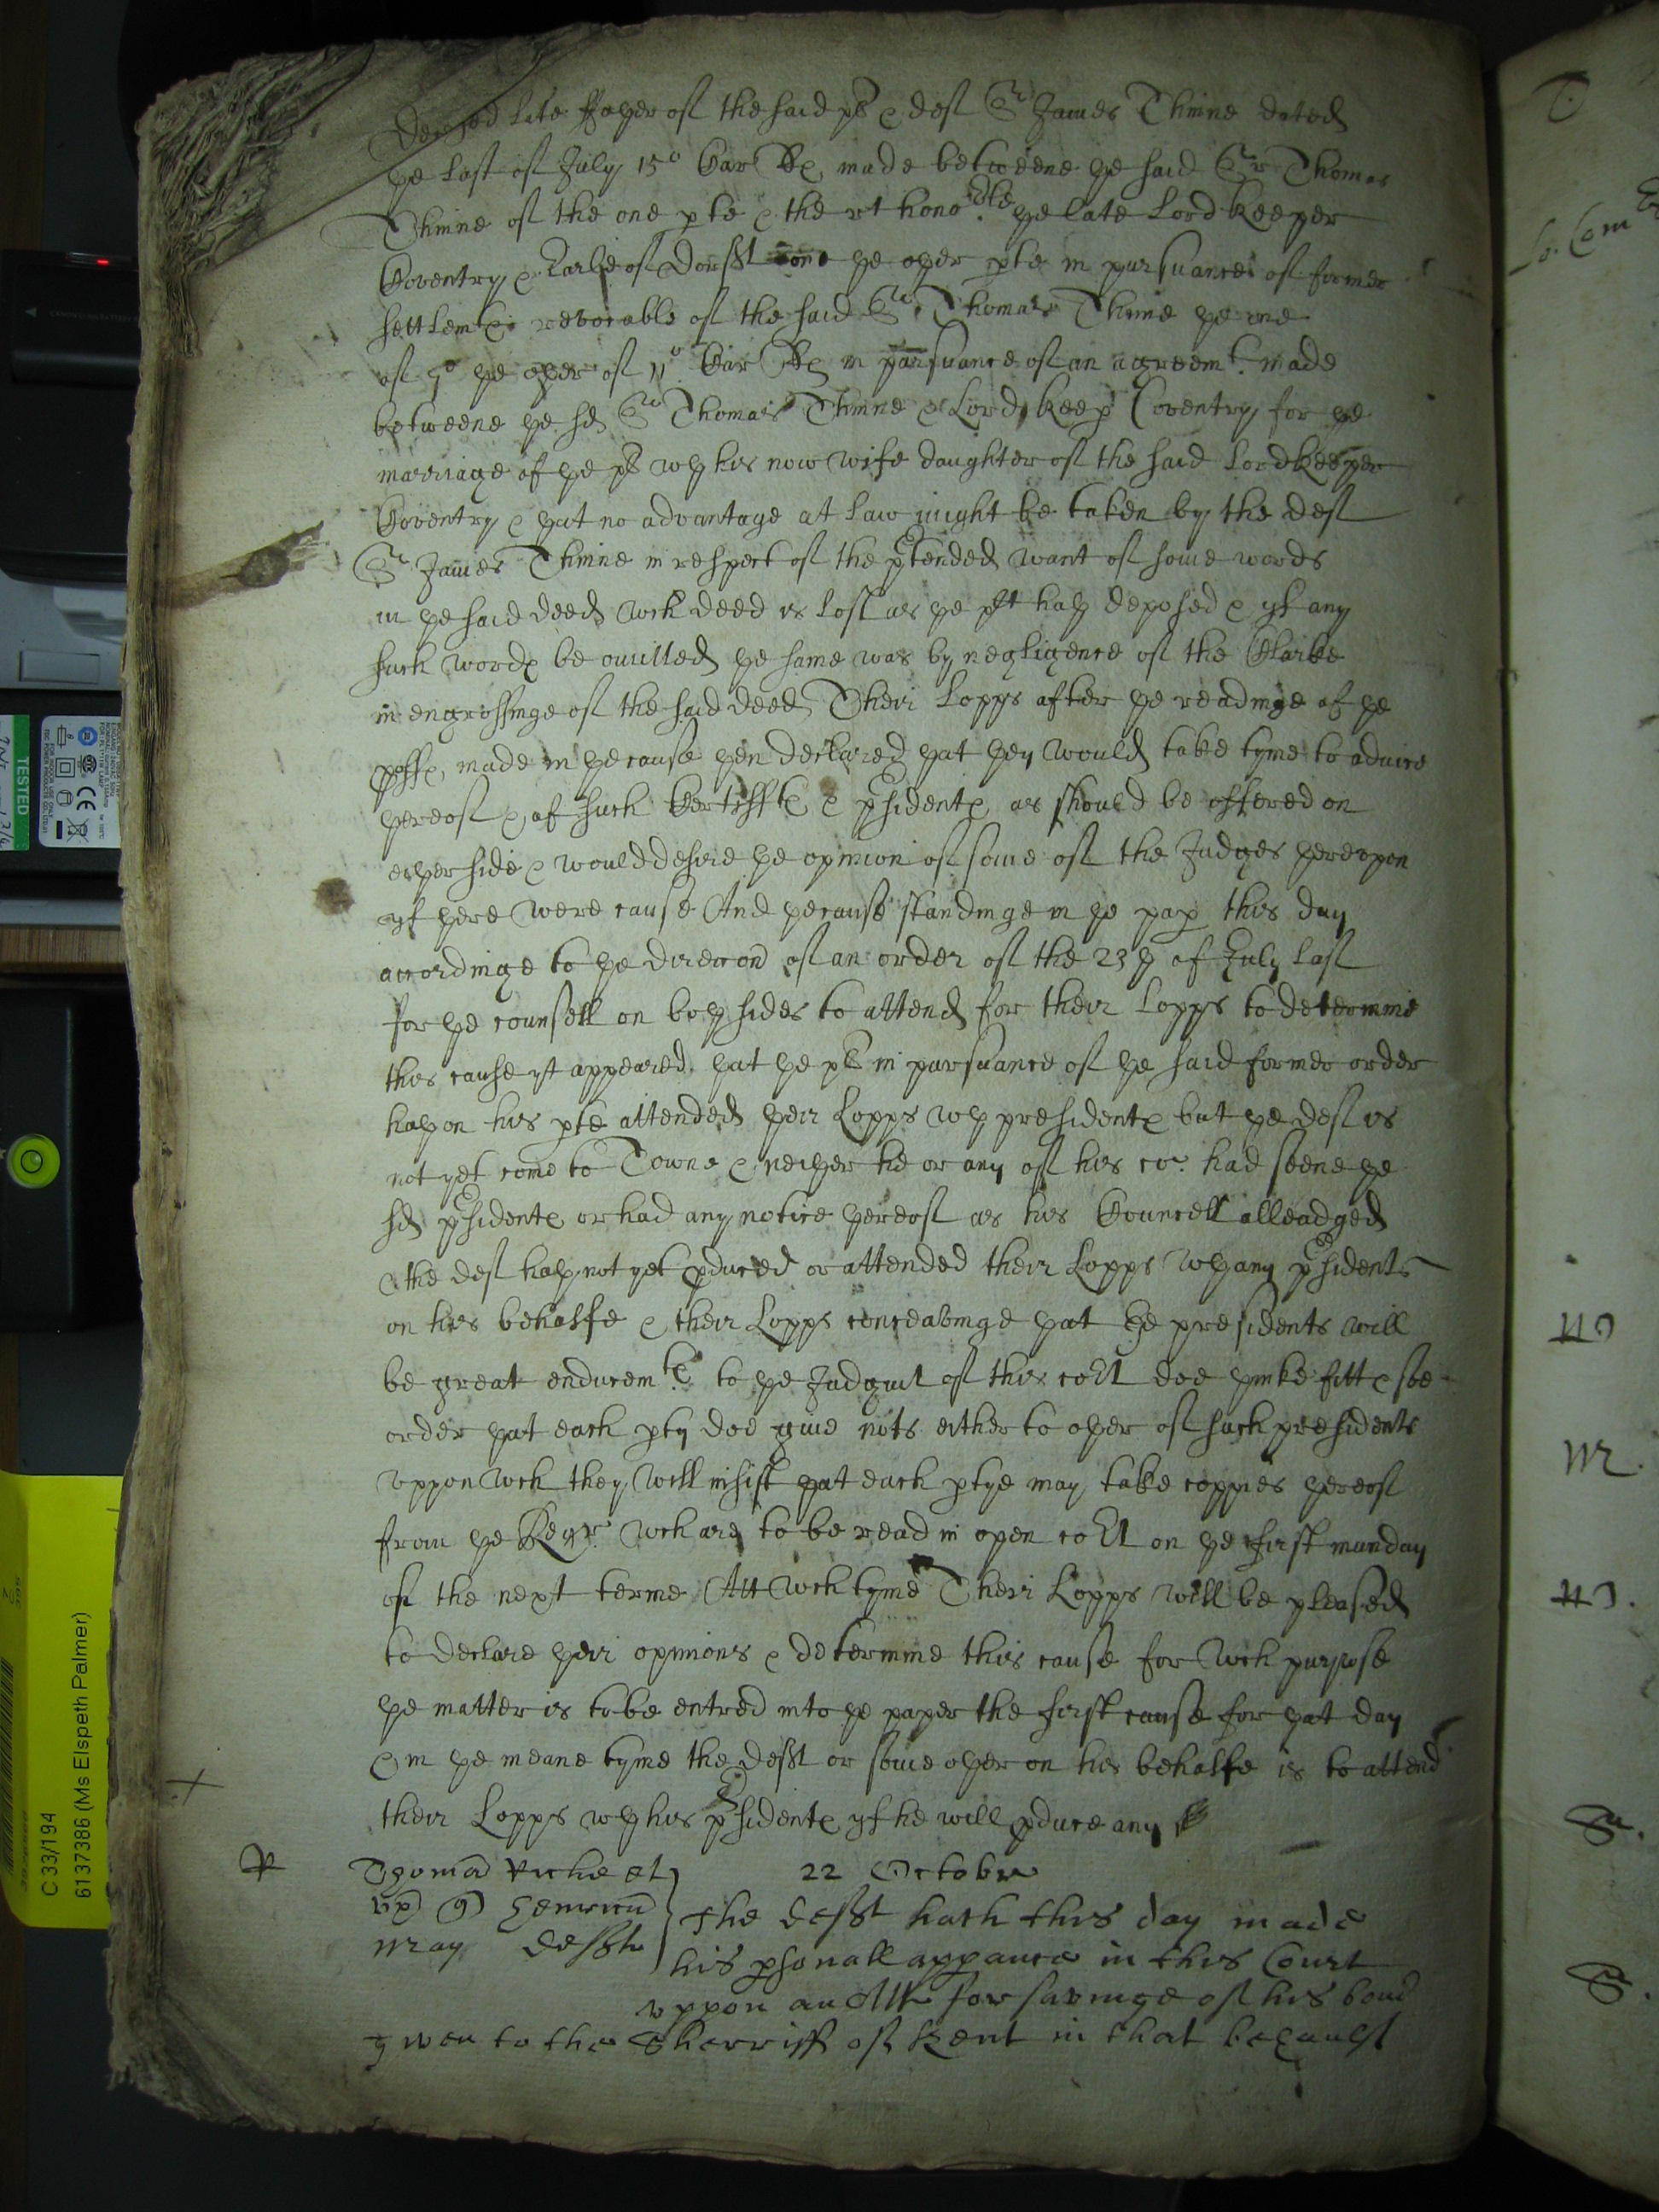 deceased late Father of the said pl & deft Sr James Thinne dated
ye last of July 15o Car Rx made betweene ye said Sr Thomas
Thinne of the one pte & the rt honoble ye late Lord Keeper
Coventry & Earle of Dorset one ye oyer pte in pursuance of former
settlemte revocable of the said Sr Thomas Thinne ye one
of 9o ye oyer of 11o Car Rx in pursuance of an agreemt made
betweene ye sd Sr Thomas Thinne & Lord Keep Coventry for ye
marriage of ye pl wth his now wife daughter of the said Lord Keeper
Coventry & yat no advantage at law might be taken by the deft
Sr James Thinne in respect of the ptended want of some words
in ye said deed wch deed is lost as ye plt hath deposed & yf any
such words be omitted ye same was by negligence of the Clarke
in engrossinge of the said deed Their Lopps after ye readinge of ye
proffe made in ye cause yen declared yat yey would take tyme to advice
yereof & of such Certiffte & psidente as should be offered on
eiyer side & would desire ye opinion of some of the Judges yereupon
yf yere were cause And ye cause standinge in ye pap this day
accordinge to ye direccon of an order of the 23th of July last
for ye counsell on both sides to attend for their Lopps to determine
this cause yt appeared yat ye pl in pursuance of ye said former order
hath on his pte attended yeir Lopps wth presidente but ye deft is
not yet come to Towne & neiyer he or any of his co had seene ye
sd psidente or had any notice yereof as his Councell alleadged
& the deft hath not yet pduced or attended their Lopps wth any psidents
on his behalfe & their Lopps conceavinge yat ye presidents will
be great enducemte to ye Judgmt of this cort doe yinke fitt & soe
order yat each pty doe give nots either to oyer of such presidents
uppon wch they will insist yat each ptye may take coppies yereof
from ye Regr wch are to be read in open cort on ye first munday
of the next terme Att wch tyme Their Lopps will be pleased
to declare yeir opinions & determine this cause for wch purpose
ye matter is to be entred into ye paper the first cause for yat day
& in ye meane tyme the deft or some oyer on his behalfe is to attend
their Lopps wth his psidente yf he will pduce any
R
Thomas Riche et
ux Henricu
Way defft
22 October
The defft hath this day made
his psonall appance in this Court
uppon an Att for savinge of his bond
given to the Sherriff of Kent in that behaulf
TESTED
C 33/194
6137386 (Ms Elspeth Palmer)